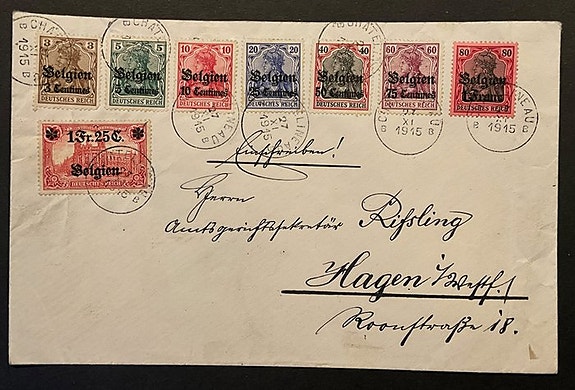 3 3 Belgien 3 Centimes DEUTSCHES REICH
5 5 Belgien 5 Centimes DEUTSCHES REICH
10 10 Belgien 10 Centimes DEUTSCHES REICH
20 20 Belgien 25 Centimes DEUTSCHES REICH
40 40 Belgien 50 Centimes DEUTSCHES REICH
60 60 Belgien 75 Centimes DEUTSCHES REICH
80 80 Belgien 1 Franc DEUTSCHES REICH
1 Fr. 25 C.
Belgien
DEUTSCHES REICH
27
XI
1915
B B
Einschreiben!
Herrn
Amtsgerichtssekretär Rißling
Hagen i/Westf.
Roonstraße 18.